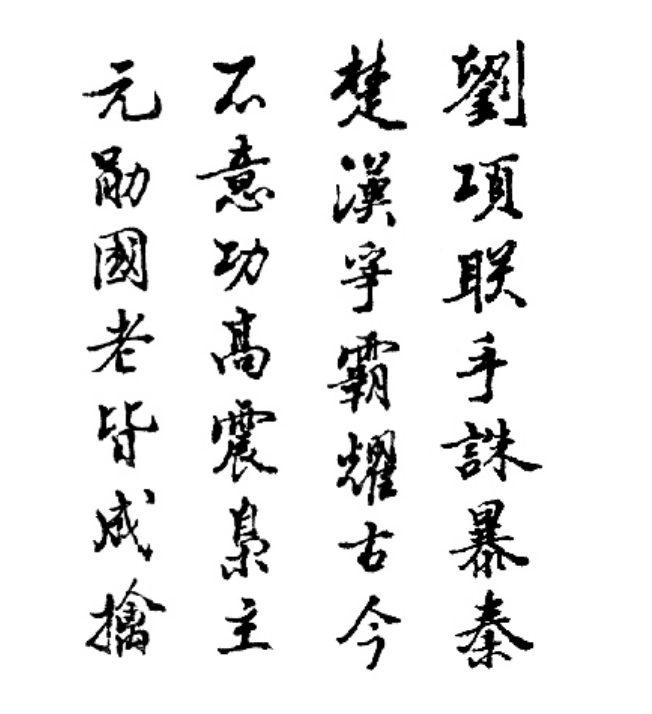 劉項联手誅暴秦
楚漢争霸耀古今
不意功高震梟主
元勛國老皆成擒